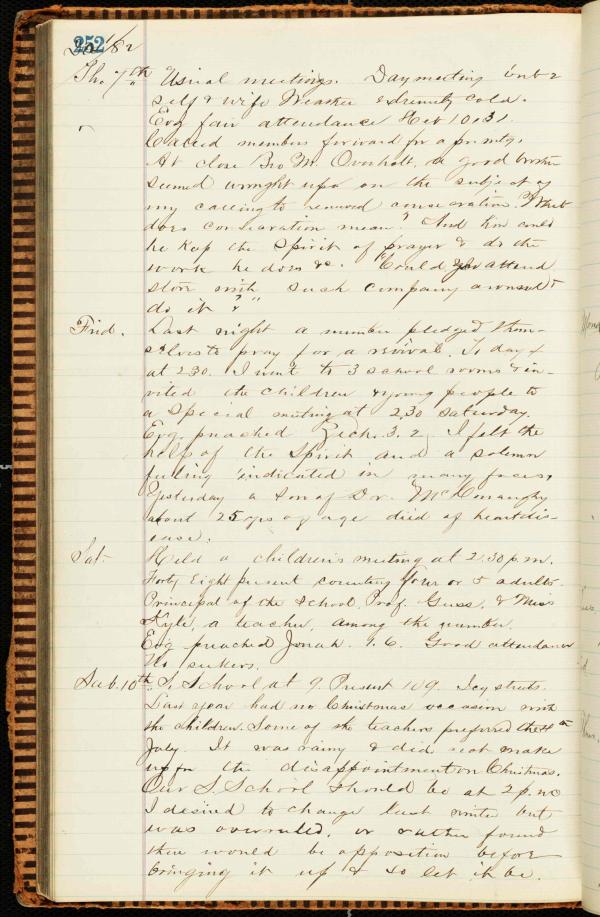 252
Th. 7th Usual meetings. Day meeting but 2
self & wife Weather extremely cold.
Evg fair attendance Heb 10.31.
Called members forward for a prmtg.
At close Bro M. Overholt, a good brother
seemed wrought upon on the subject of
my calling to renewed consecration. "What
does consecration mean? And how could
he keep the Spirit of prayer & do the
work he does &c. "Could you attend
store with such company around &
do it?"
Frid. Last night a number pledged them-
selves to pray for a revival. To day
at 2.30. I went to 3 school rooms & in-
vited the children & young people to
a special meeting at 2.30 Saturday.
Evg. preached Zech. 3.2. I felt the
help of the Spirit and a solemn
feeling indicated in many faces.
Yesterday a son of Dr. McConaughy
about 25 yrs of age died of heart dis-
ease.
Sat. Held a children's meeting at 2.30 p.m.
Forty Eight present counting four or 5 adults.
Principal of the School, Prof. Guss, & Miss
Kyle, a teacher, among the number.
Evg preached Jonah. 1.6. Good attendance
No seekers.
Sab. 10th. S. School at 9. Present 109. Icy streets.
Last year had no Christmas occasion with
the children. Some of the teachers preferred the 4th
July. It was rainy & did not make
up for the disappointment on Christmas.
Our S. School should be at 2 p.m.
I desired to change last winter but
was overruled, or rather found
there would be opposition before
bringing it up & so let it be.